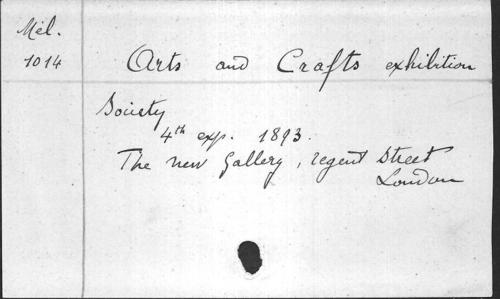 Mél.
1014
Arts and Crafts exhibition
Society
4th exp. 1893.
The new Gallery, regent Street
London